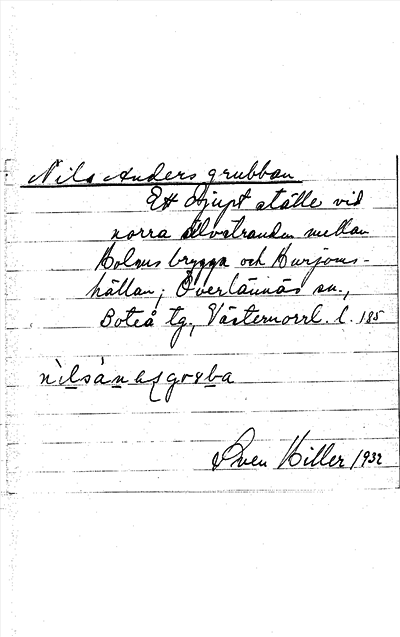 Nils Anders grubban
Ett djupt ställe vid
norra älvstranden mellan
Holms brygga och Hurjons-
hällan; Överlännäs sn.,
Boteå tg., Västernorrl. l. 185
Sven Hiller 1932